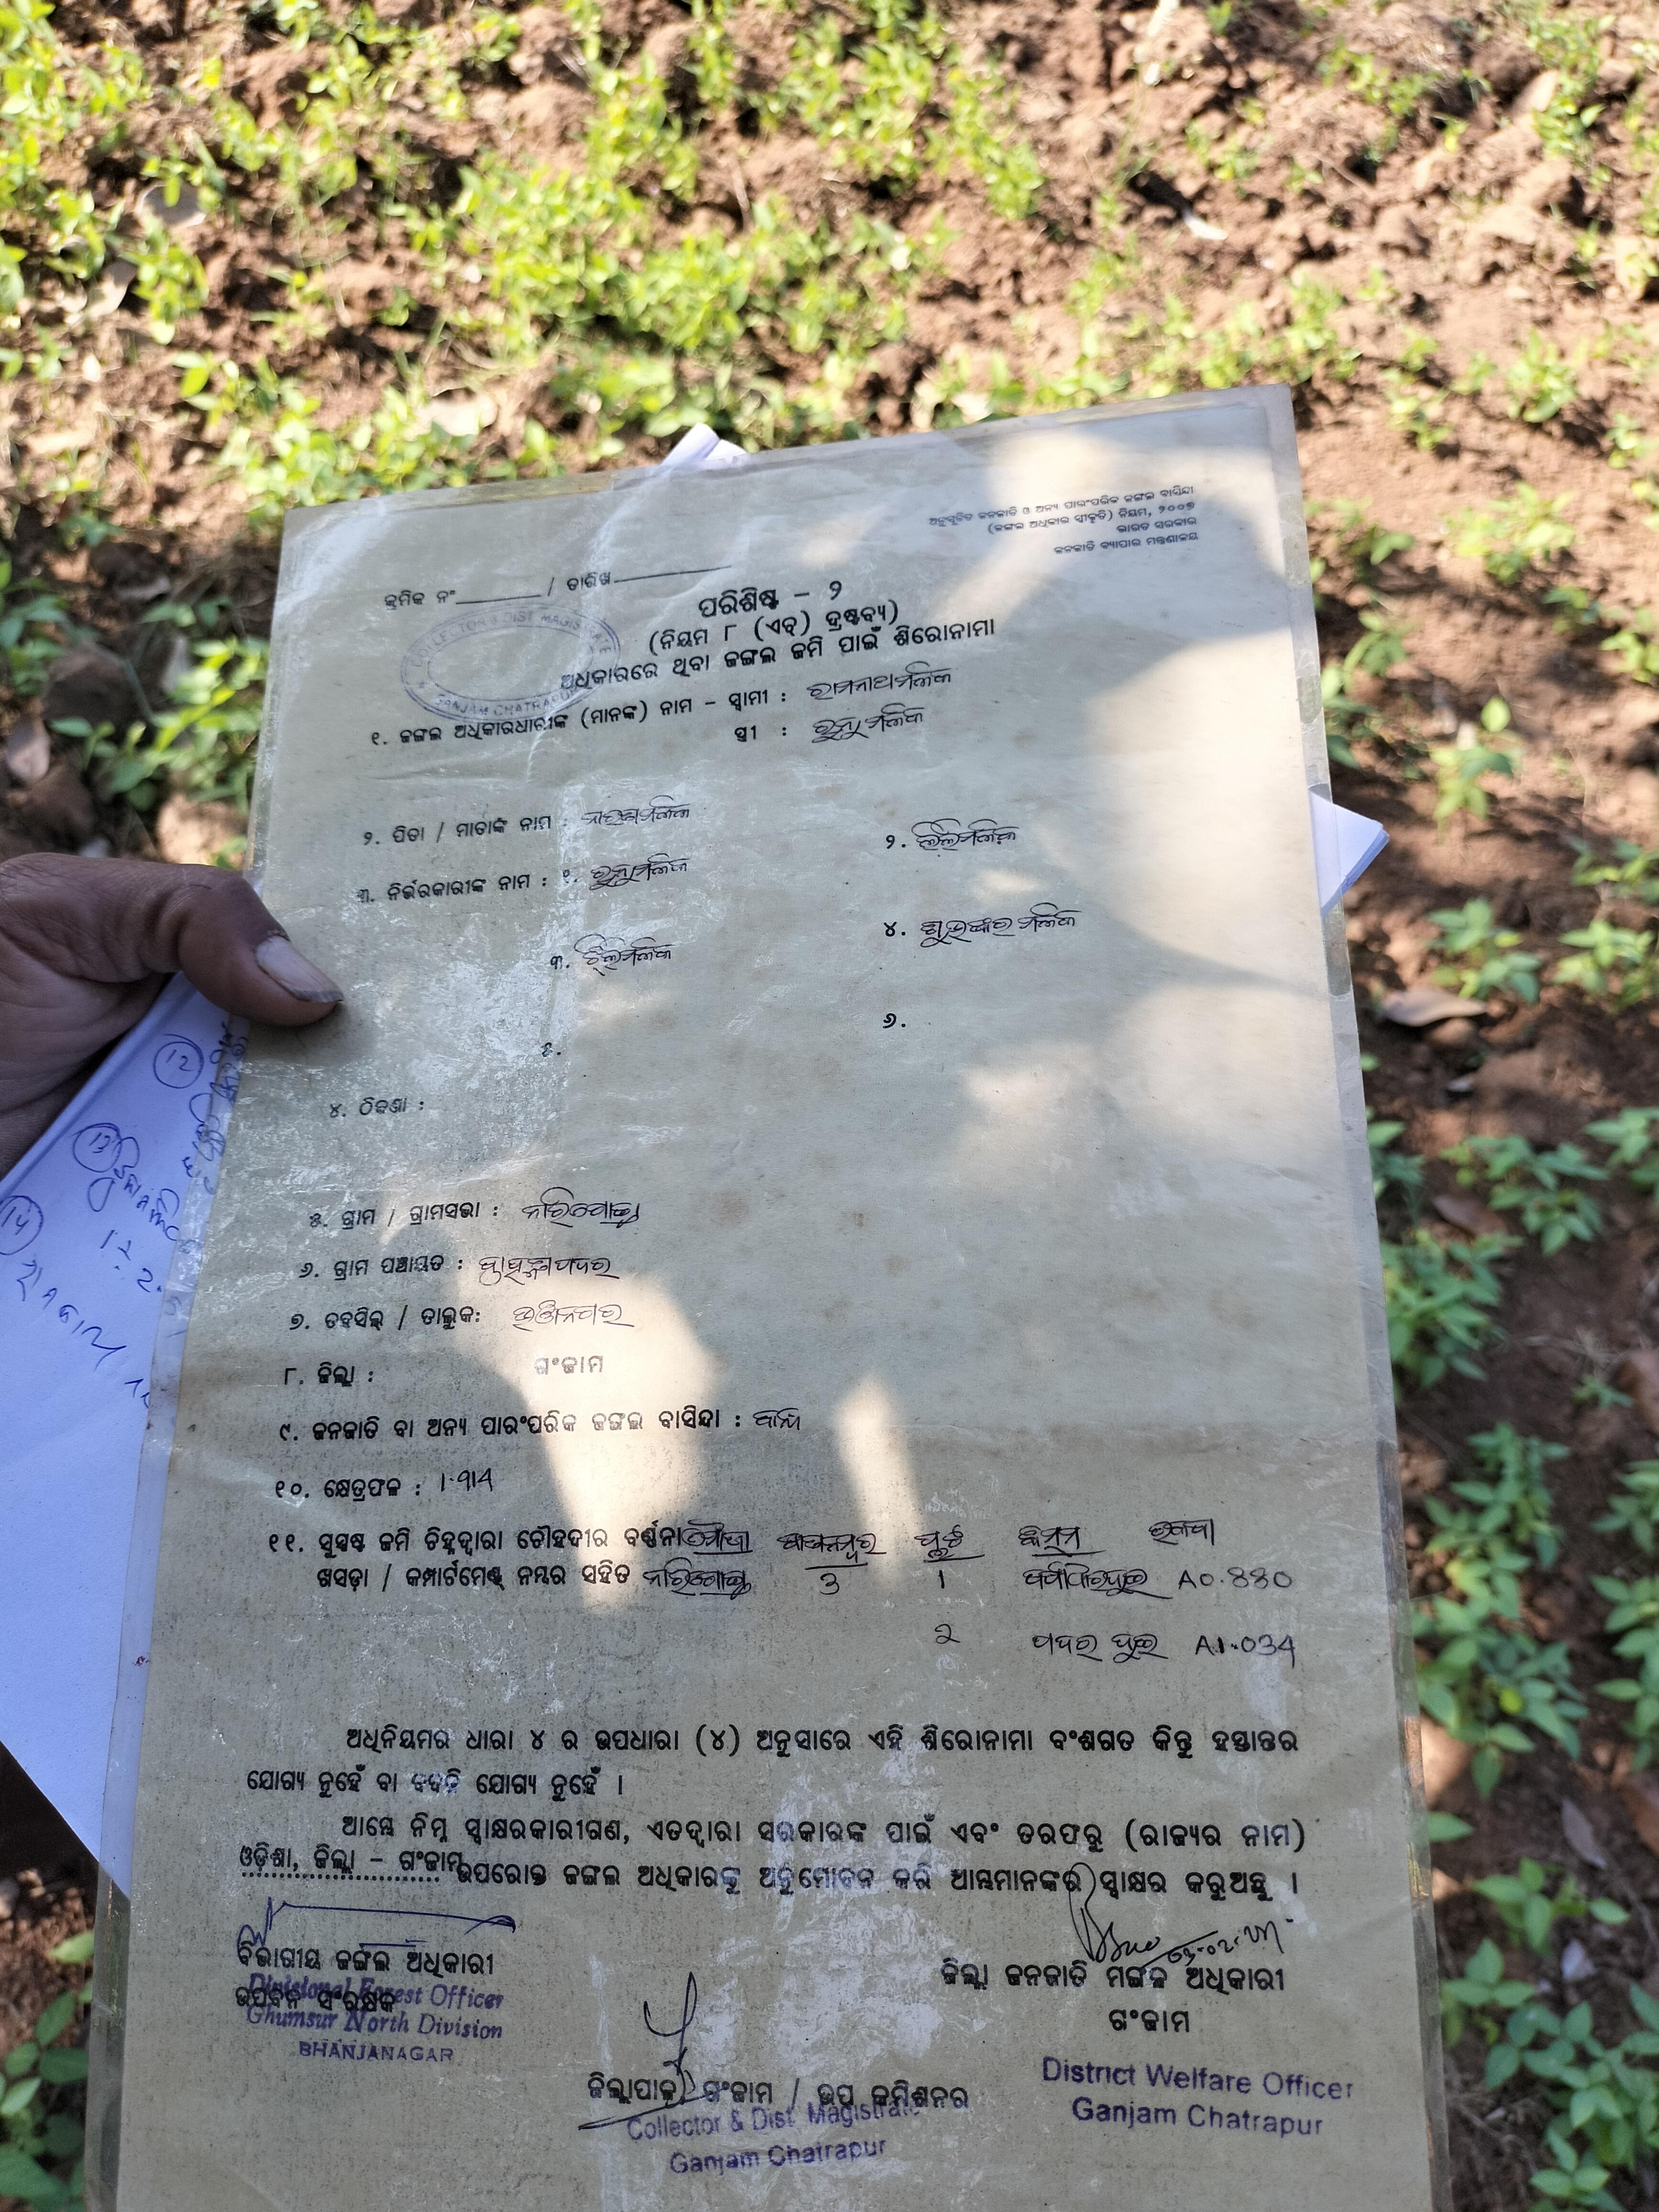 ଅନୁସୂଚିତ ଜନଜାତି ଓ ଅନ୍ୟ ପାରଂପରିକ ଜଙ୍ଗଲ ବାସିନ୍ଦା
(ଜଙ୍ଗଲ ଅଧିକାର ସ୍ୱୀକୃତି) ନିୟମ, ୨୦୦୭
ଭାରତ ସରକାର
ଜନଜାତି ବ୍ୟାପାର ମନ୍ତ୍ରଣାଳୟ
କ୍ରମିକ ନଂ / ତାରିଖ
ପରିଶିଷ୍ଟ - ୨
(ନିୟମ ୮ (ଏଚ୍) ଦ୍ରଷ୍ଟବ୍ୟ)
ଅଧିକାରରେ ଥିବା ଜଙ୍ଗଲ ଜମି ପାଇଁ ଶିରୋନାମା
୧. ଜଙ୍ଗଲ ଅଧିକାରଧାରୀଙ୍କ (ମାନଙ୍କ) ନାମ - ସ୍ୱାମୀ : ରାମନାଥ ମଳିକ
ସ୍ତ୍ରୀ : ରୁନୁ ମଳିକ
୨. ପିତା / ମାତାଙ୍କ ନାମ : ମଳିକ
୩. ନିର୍ଭରକାରୀଙ୍କ ନାମ : ୧. ରୁନୁ ମଳିକ
୨. ଲିଲି ମଳିକ
୩. ମଳିକ
୪. ଶୁଭଙ୍କର ମଳିକ
୫.
୬.
୪. ଠିକଣା :
୫. ଗ୍ରାମ / ଗ୍ରାମସଭା :
୬. ଗ୍ରାମ ପଞ୍ଚାୟତ :
୭. ତହସିଲ୍ / ତାଲୁକ: ଭଞ୍ଜନଗର
୮. ଜିଲ୍ଲା : ଗଂଜାମ
୯. ଜନଜାତି ବା ଅନ୍ୟ ପାରଂପରିକ ଜଙ୍ଗଲ ବାସିନ୍ଦା :
୧୦. କ୍ଷେତ୍ରଫଳ :
୧୧. ସୁସ୍ପଷ୍ଟ ଜମି ଚିହ୍ନଦ୍ୱାରା ଚୌହଦୀର ବର୍ଣ୍ଣନା ମୌଜା ଖାତା ନମ୍ବର ପ୍ଲଟ କିସମ ରକବା
ଖସଡ଼ା / କମ୍ପାର୍ଟମେଣ୍ଟ୍ ନମ୍ବର ସହିତ 3 1 A0.880
2 A1.034
ଅଧିନିୟମର ଧାରା ୪ ର ଉପଧାରା (୪) ଅନୁସାରେ ଏହି ଶିରୋନାମା ବଂଶଗତ କିନ୍ତୁ ହସ୍ତାନ୍ତର
ଯୋଗ୍ୟ ନୁହେଁ ବା ବଦଳି ଯୋଗ୍ୟ ନୁହେଁ ।
ଆମ୍ଭେ ନିମ୍ନ ସ୍ୱାକ୍ଷରକାରୀଗଣ, ଏତଦ୍ୱାରା ସରକାରଙ୍କ ପାଇଁ ଏବଂ ତରଫରୁ (ରାଜ୍ୟର ନାମ)
ଓଡ଼ିଶା, ଜିଲ୍ଲା - ଗଂଜାମ ଉପରୋକ୍ତ ଜଙ୍ଗଲ ଅଧିକାରକୁ ଅନୁମୋଦନ କରି ଆମ୍ଭମାନଙ୍କର ସ୍ୱାକ୍ଷର କରୁଅଛୁ ।
ବିଭାଗୀୟ ଜଙ୍ଗଲ ଅଧିକାରୀ
ଉପବନ ସଂରକ୍ଷକ
Divisional Forest Officer
Ghumsur North Division
BHANJANAGAR
ଜିଲ୍ଲା ଜନଜାତି ମଙ୍ଗଳ ଅଧିକାରୀ
ଗଂଜାମ
District Welfare Officer
Ganjam Chatrapur
ଜିଲ୍ଲାପାଳ, ଗଂଜାମ / ଉପ କମିଶନର
Collector & Dist. Magistrate
Ganjam Chatrapur
12
13
14